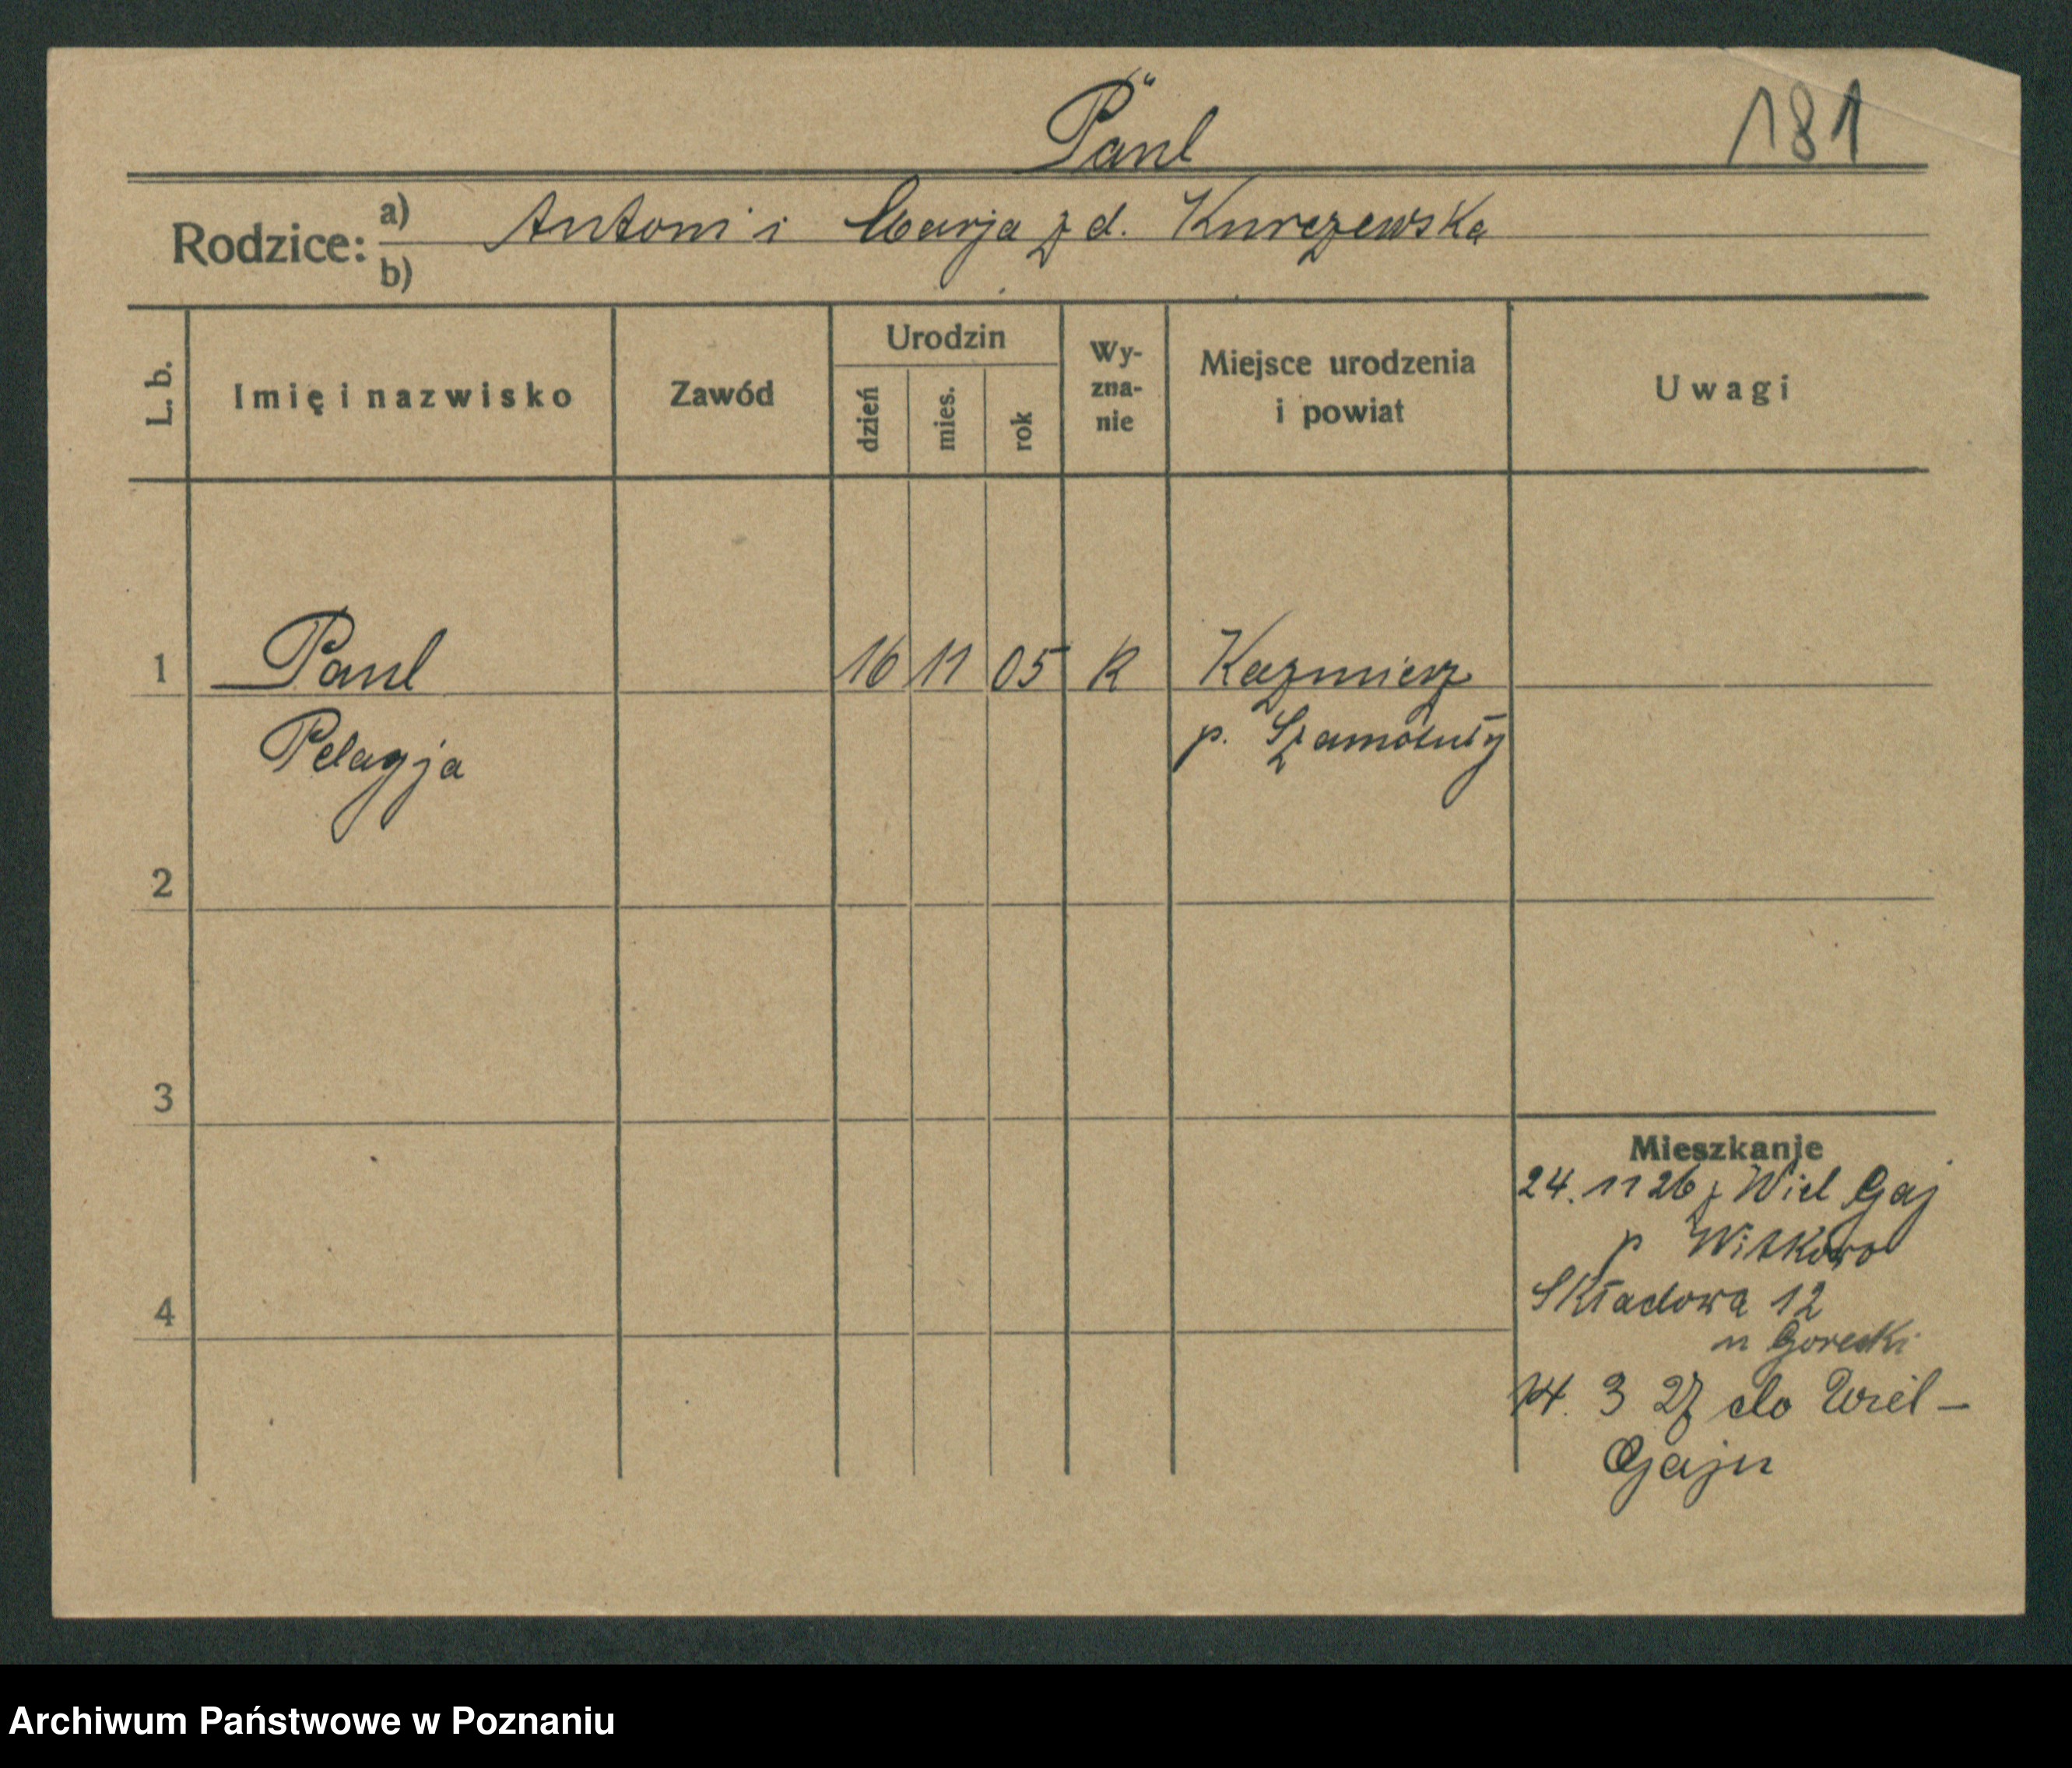 Paul
181
Rodzice: a) Antoni i Marja z d. Kurczewska
b)
L. b.
Imię i nazwisko
Zawód
Urodzin
dzień
mies.
rok
Wy-
zna-
nie
Miejsce urodzenia
i powiat
Uwagi
1 Paul 16 11 05 K Kazmierz
Pelagja p. Szamotuły
2
3
Mieszkanie
24. 11 26 z Wiel Gaj
p Witkowo
Składowa 12
4
u Gorecki
14. 3 27 do Wiel-
Gaju
Archiwum Państwowe w Poznaniu